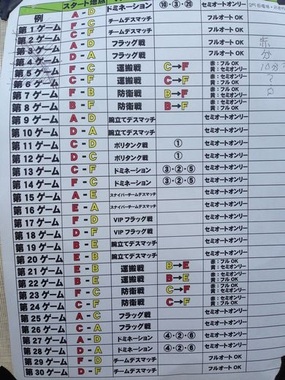 スタート地点
例 A - D ドミネーション ⑩・③・⑳ セミオートオンリー
第 1 ゲーム F - C チームデスマッチ フルオート OK
第 2 ゲーム C - F チームデスマッチ フルオート OK
第 3 ゲーム A - D フラッグ戦 フルオート OK
第 4 ゲーム D - A フラッグ戦 フルオート OK
第 5 ゲーム F - C 運搬戦 C→F
第 6 ゲーム C - F 運搬戦 C→F
第 7 ゲーム F - B 防衛戦 B→F
第 8 ゲーム B - F 防衛戦 B→F
第 9 ゲーム A - D 腕立てデスマッチ セミオートオンリー
第 10 ゲーム D - A 腕立てデスマッチ セミオートオンリー
第 11 ゲーム C - D ポリタンク戦 ① セミオートオンリー
第 12 ゲーム D - C ポリタンク戦 ① セミオートオンリー
第 13 ゲーム F - C ドミネーション ③・②・⑤ セミオートオンリー
第 14 ゲーム C - F ドミネーション ③・②・⑤ セミオートオンリー
第 15 ゲーム A - E スナイパーチームデスマッチ セミオートオンリー
第 16 ゲーム E - A スナイパーチームデスマッチ セミオートオンリー
第 17 ゲーム F - D VIP フラッグ戦 フルオート OK
第 18 ゲーム D - F VIP フラッグ戦 フルオート OK
第 19 ゲーム B - E 腕立てデスマッチ セミオートオンリー
第 20 ゲーム E - B 腕立てデスマッチ セミオートオンリー
第 21 ゲーム E - B 運搬戦 B→E
第 22 ゲーム B - E 運搬戦 B→E
第 23 ゲーム F - C 防衛戦 C→F
第 24 ゲーム C - F 防衛戦 C→F
第 25 ゲーム A - C フラッグ戦 フルオート OK
第 26 ゲーム C - A フラッグ戦 フルオート OK
第 27 ゲーム A - D ドミネーション ④・②・⑥ セミオートオンリー
第 28 ゲーム D - A ドミネーション ④・②・⑥ セミオートオンリー
第 29 ゲーム F - D チームデスマッチ フルオート OK
第 30 ゲーム D - F チームデスマッチ フルオート OK